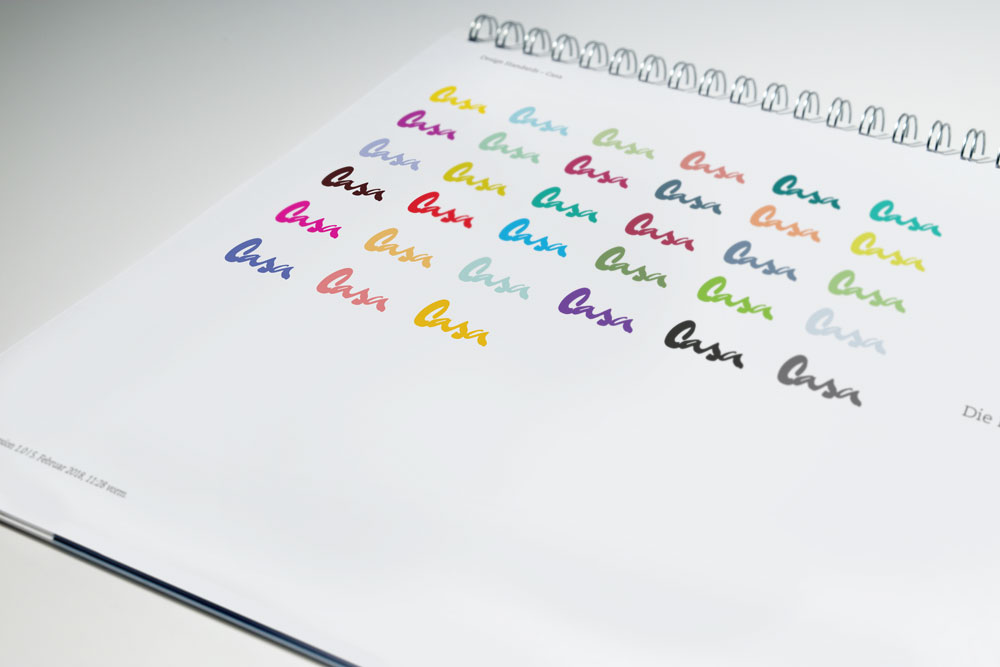 Design Standards – Casa
Casa Casa Casa Casa Casa Casa
Casa Casa Casa Casa Casa Casa
Casa Casa Casa Casa Casa Casa
Casa Casa Casa Casa Casa Casa
Casa Casa Casa Casa Casa Casa
Casa Casa Casa
Die
1.0 | 5. Februar 2018, 11:28 vorm.